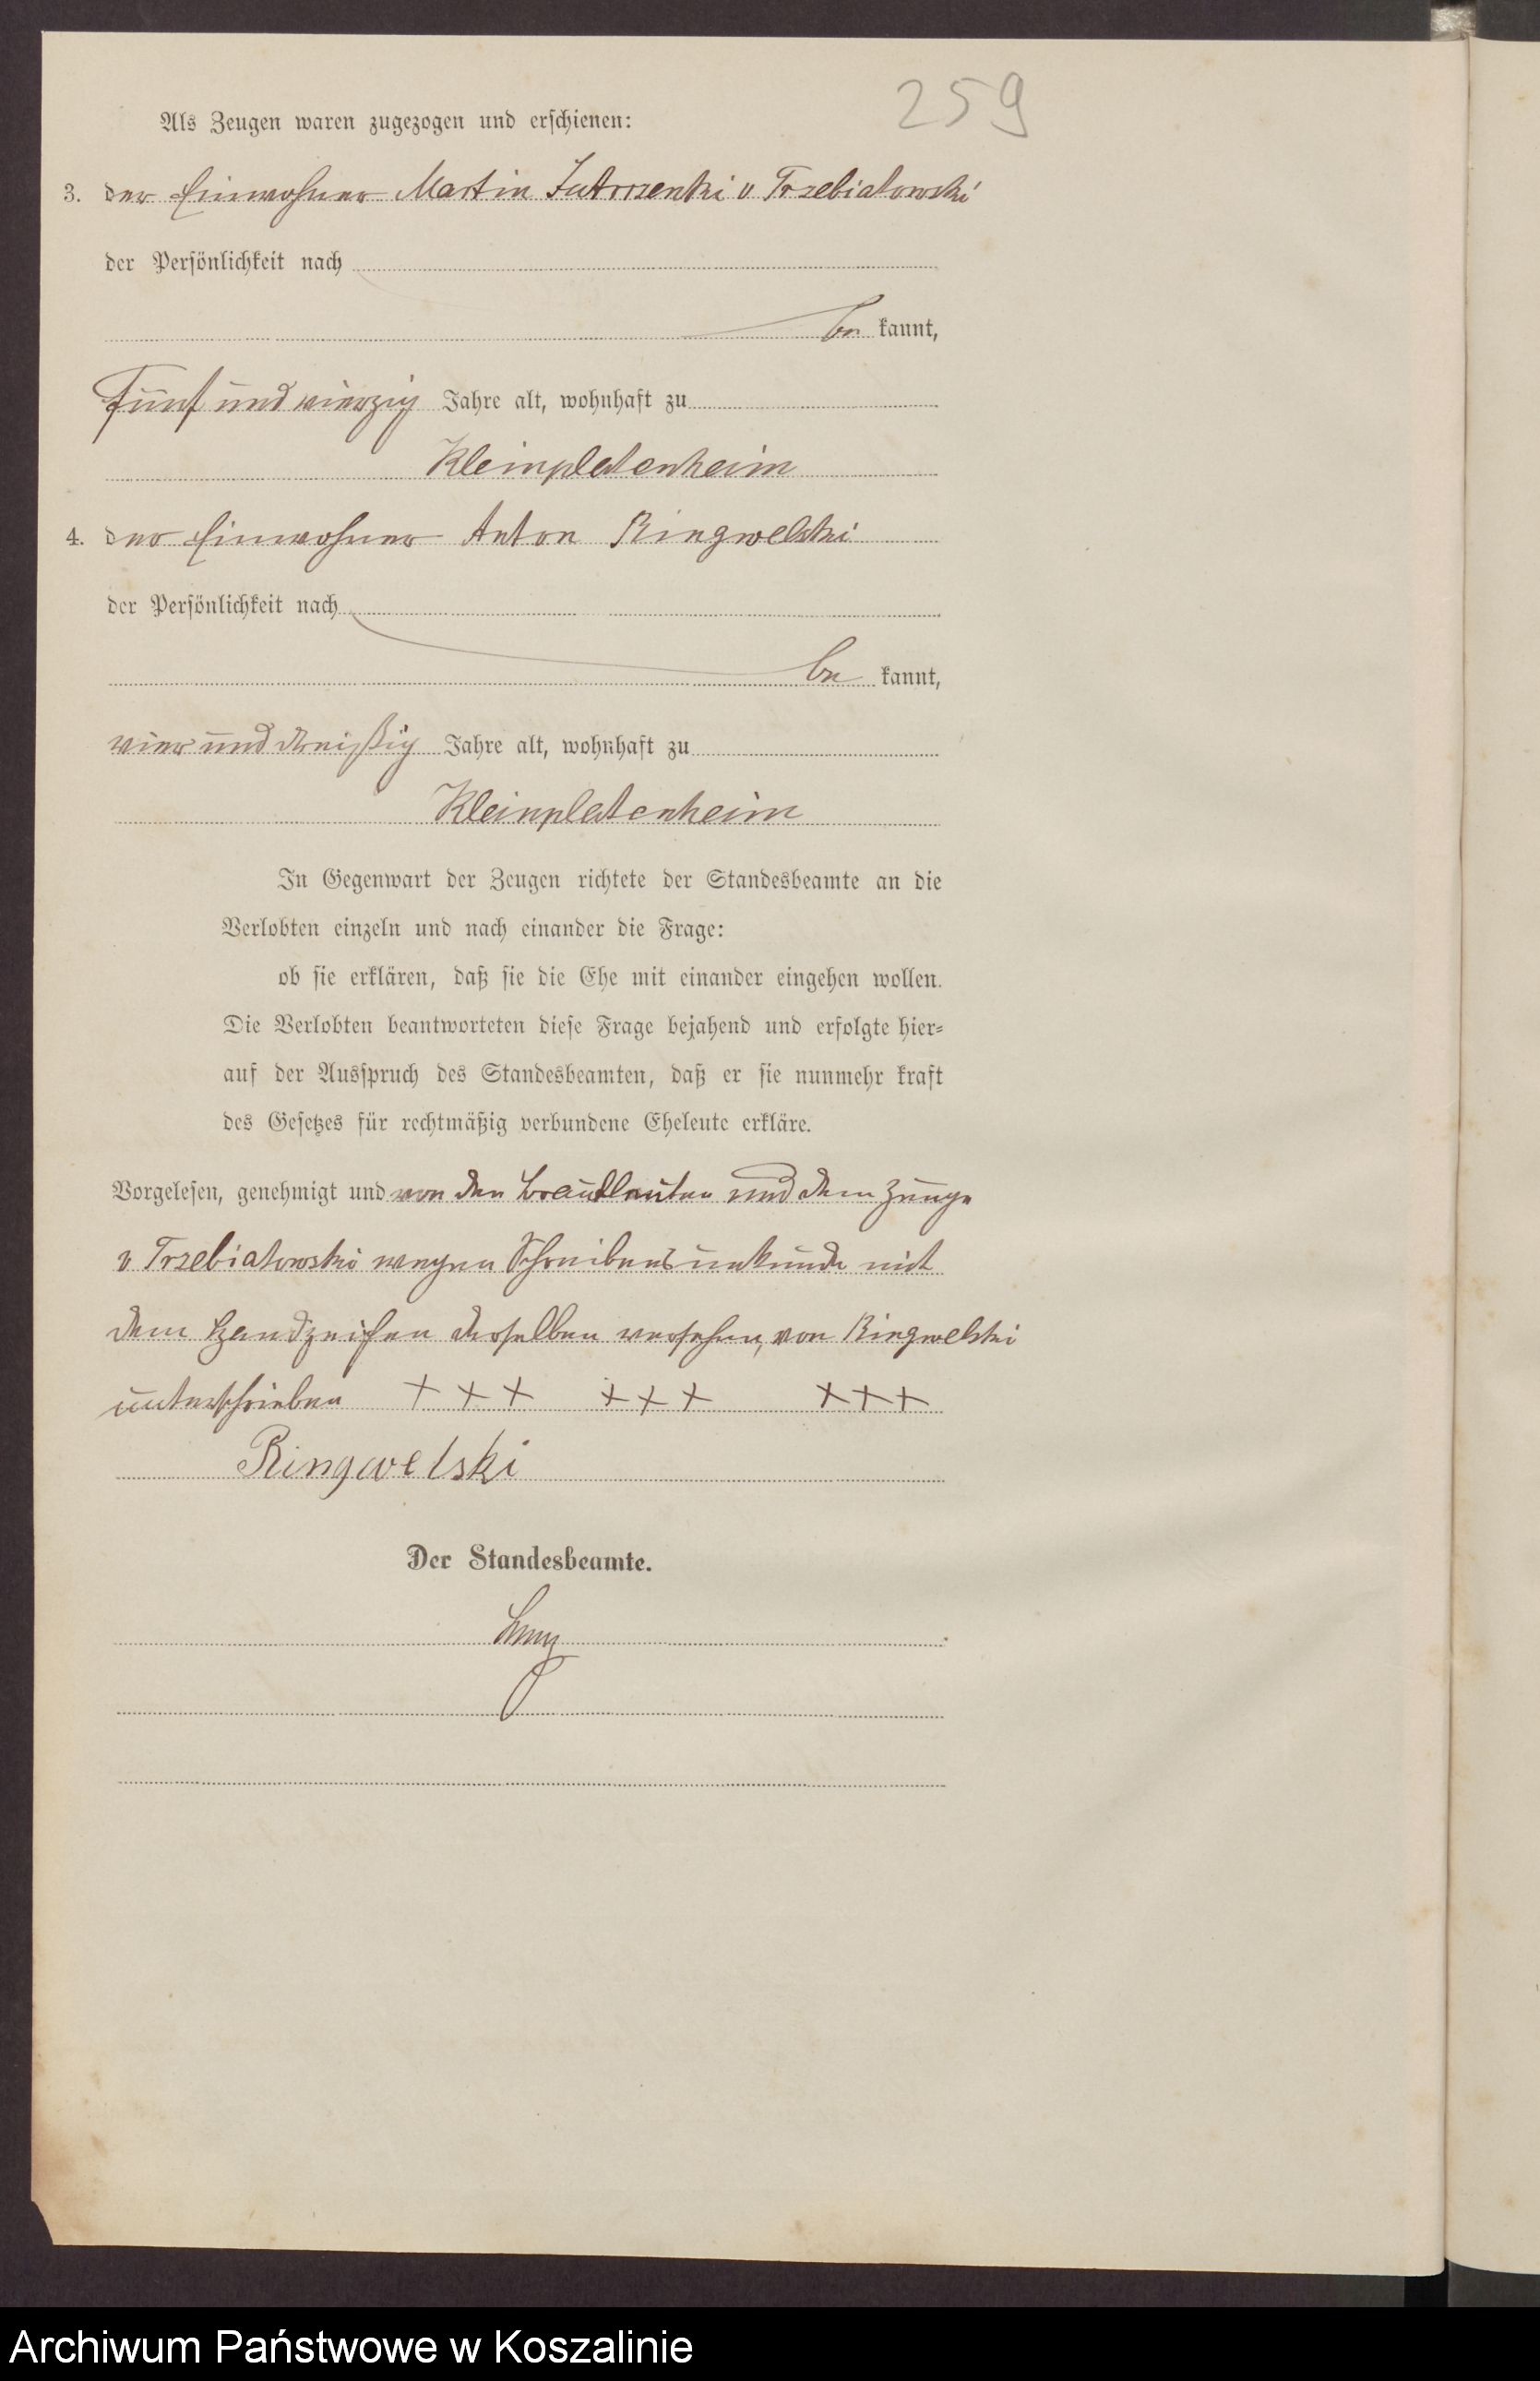 259
Als Zeugen waren zugezogen und erschienen:
3. der Einwohner Martin Jutrzenki v Trzebiatowski
der Persönlichkeit nach
be kannt,
fünf und vierzig Jahre alt, wohnhaft zu
Kleinplatenheim
4. der Einwohner Anton Ringwelski
der Persönlichkeit nach
be kannt,
vier und dreißig Jahre alt, wohnhaft zu
Kleinplatenheim
In Gegenwart der Zeugen richtete der Standesbeamte an die
Verlobten einzeln und nach einander die Frage:
ob sie erklären, daß sie die Ehe mit einander eingehen wollen.
Die Verlobten beantworteten diese Frage bejahend und erfolgte hier-
auf der Ausspruch des Standesbeamten, daß er sie nunmehr kraft
des Gesetzes für rechtmäßig verbundene Eheleute erkläre.
Vorgelesen, genehmigt und von den Brautleuten und dem Zeuge
v Trzebiatowski wegen Schreibensunkunde mit
dem Handzeichen derselben versehen, von Ringwelski
unterschrieben +++ +++ +++
Ringwelski
Der Standesbeamte.
Archiwum Państwowe w Koszalinie